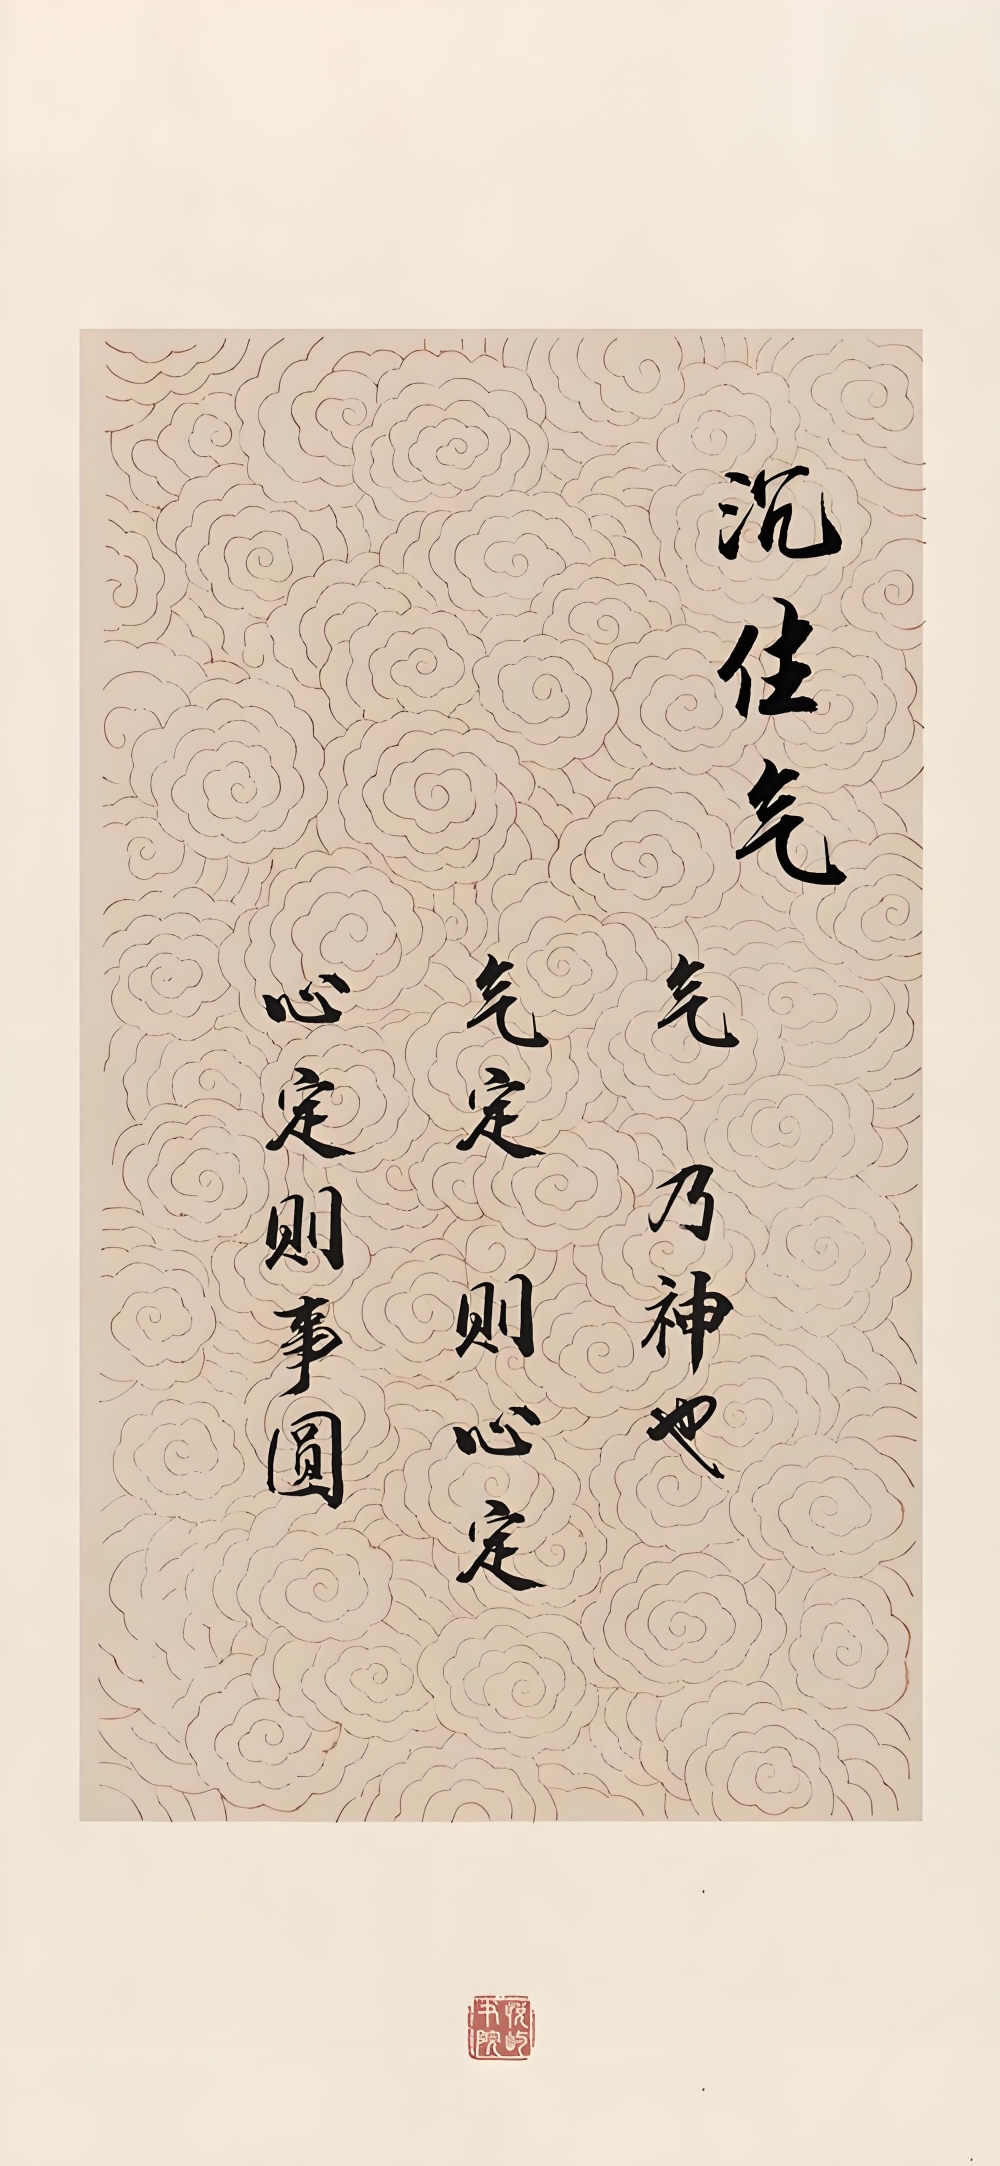 沉住气
气乃神也
气定则心定
心定则事圆
悦屿
书院